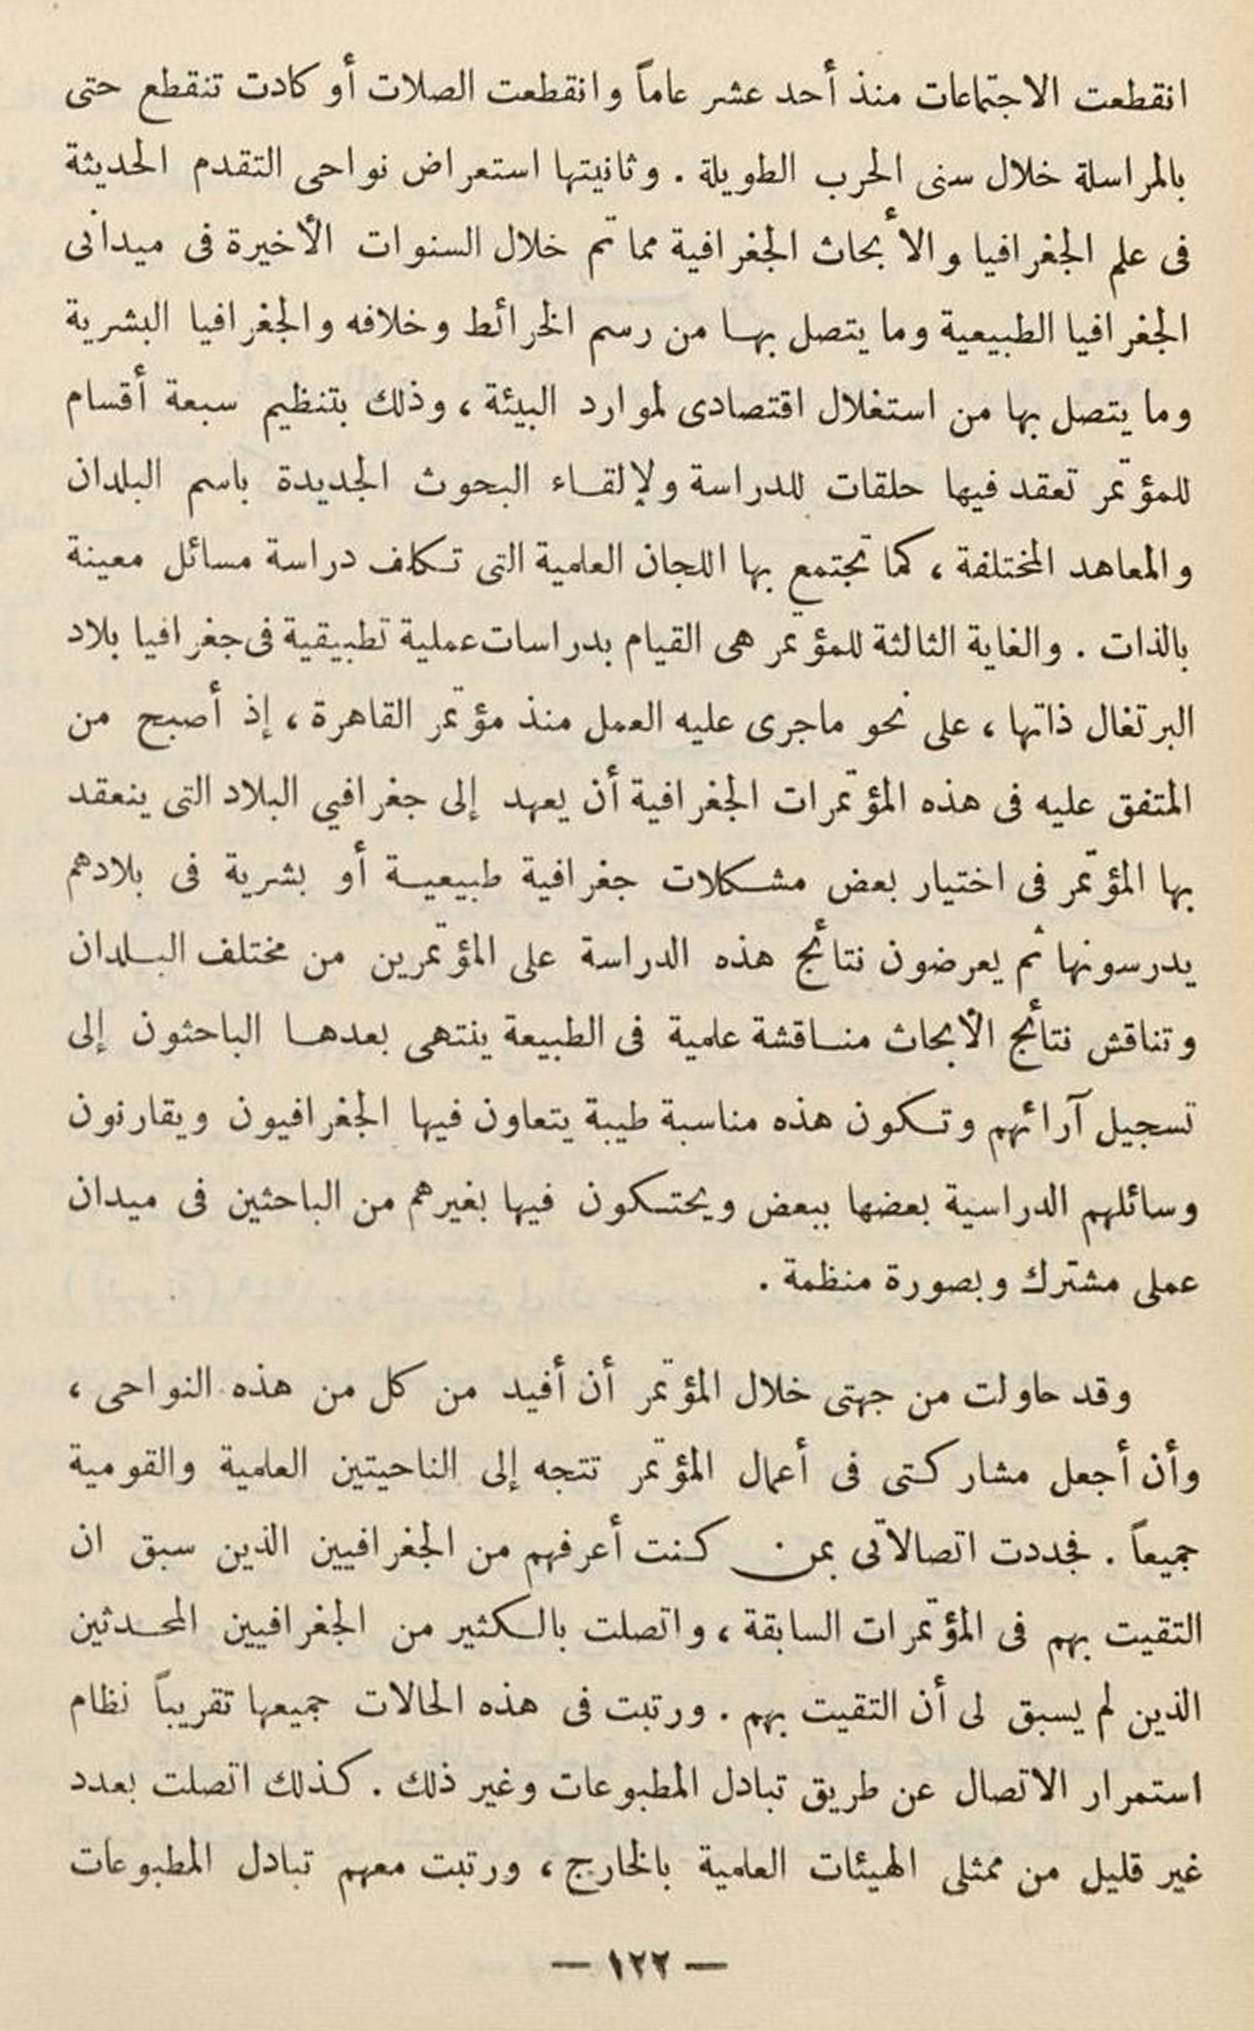 انقطعت الاجتماعات منذ أحد عشر عاماً وانقطعت الصلات أو كادت تنقطع حتى
بالمراسلة خلال سنى الحرب الطويلة . وثانيتها استعراض نواحى التقدم الحديثة
فى علم الجغرافيا والأبحاث الجغرافية مما تم خلال السنوات الأخيرة فى ميدانى
الجغرافيا الطبيعية وما يتصل بها من رسم الخرائط وخلافه والجغرافيا البشرية
وما يتصل بها من استغلال اقتصادى لموارد البيئة ، وذلك بتنظيم سبعة أقسام
للمؤتمر تعقد فيها حلقات للدراسة ولإلقاء البحوث الجديدة باسم البلدان
والمعاهد المختلفة ، كما تجتمع بها اللجان العلمية التى تكلف دراسة مسائل معينة
بالذات . والغاية الثالثة للمؤتمر هى القيام بدراسات عملية تطبيقية فى جغرافيا بلاد
البرتغال ذاتها ، على نحو ماجرى عليه العمل منذ مؤتمر القاهرة ، إذ أصبح من
المتفق عليه فى هذه المؤتمرات الجغرافية أن يعهد إلى جغرافيي البلاد التى ينعقد
بها المؤتمر فى اختيار بعض مشكلات جغرافية طبيعية أو بشرية فى بلادهم
يدرسونها ثم يعرضون نتائج هذه الدراسة على المؤتمرين من مختلف البلدان
وتناقش نتائج الأبحاث مناقشة علمية فى الطبيعة ينتهى بعدها الباحثون إلى
تسجيل آرائهم وتكون هذه مناسبة طيبة يتعاون فيها الجغرافيون ويقارنون
وسائلهم الدراسية بعضها ببعض ويحتكون فيها بغيرهم من الباحثين فى ميدان
عملى مشترك وبصورة منظمة .
وقد حاولت من جهتى خلال المؤتمر أن أفيد من كل من هذه النواحى ،
وأن أجعل مشاركتى فى أعمال المؤتمر تتجه إلى الناحيتين العلمية والقومية
جميعاً . فجددت اتصالاتى بمن كنت أعرفهم من الجغرافيين الذين سبق ان
التقيت بهم فى المؤتمرات السابقة ، واتصلت بالكثير من الجغرافيين المحدثين
الذين لم يسبق لى أن التقيت بهم . ورتبت فى هذه الحالات جميعها تقريباً نظام
استمرار الاتصال عن طريق تبادل المطبوعات وغير ذلك . كذلك اتصلت بعدد
غير قليل من ممثلى الهيئات العلمية بالخارج ، ورتبت معهم تبادل المطبوعات
— ١٢٢ —